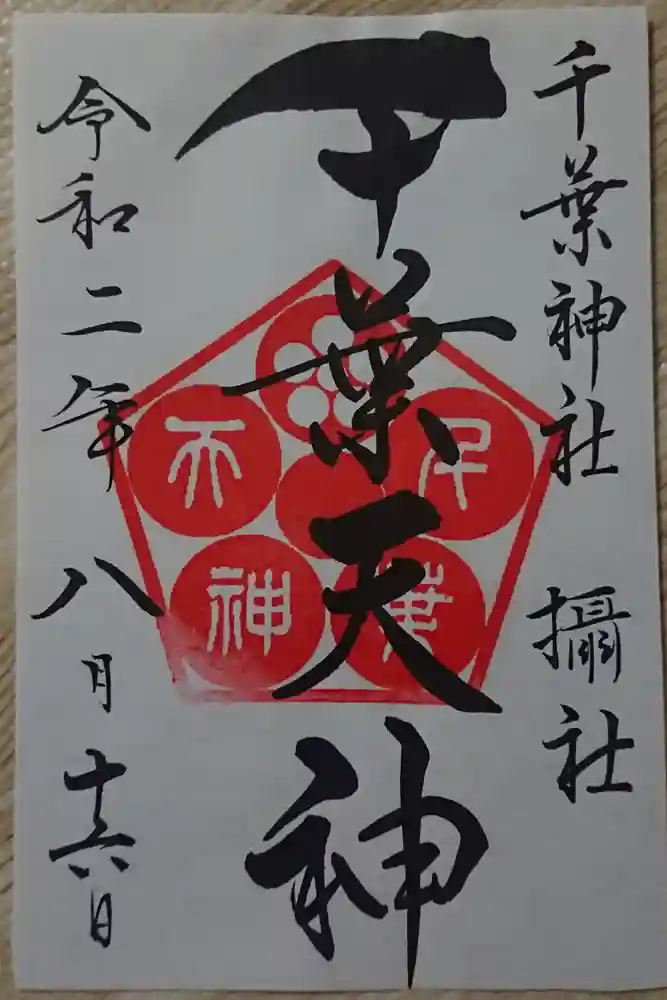 千葉神社 攝社
千葉天神
千葉天神
令和二年 八月十六日